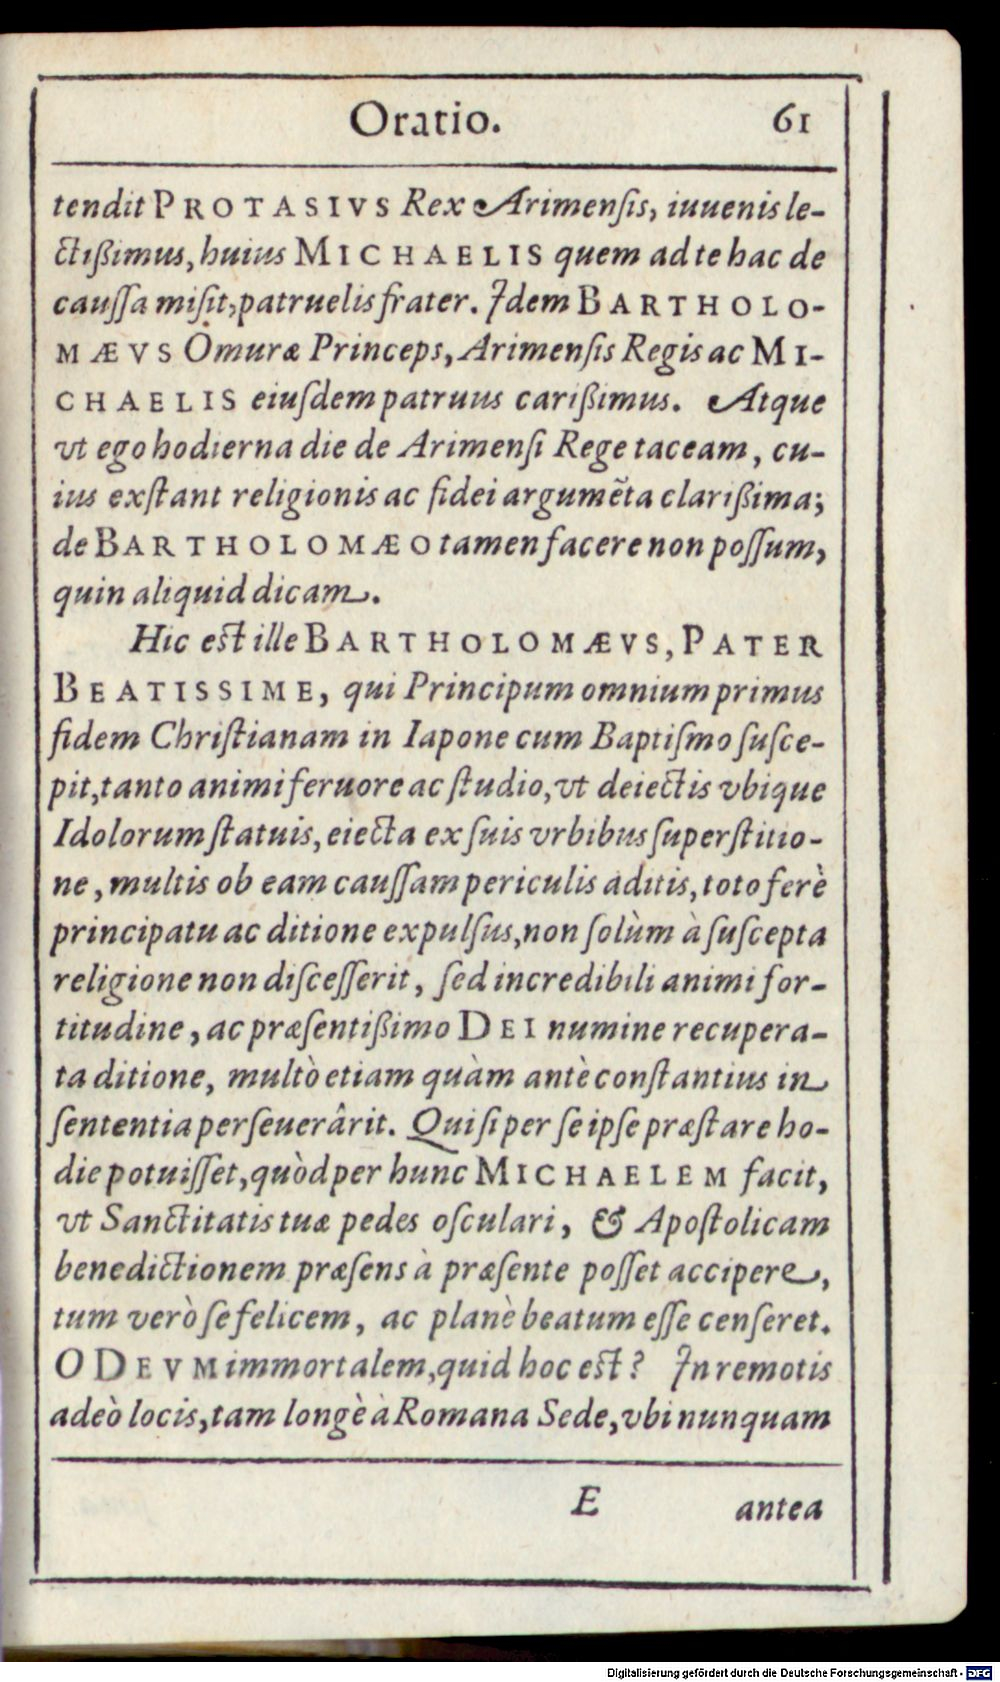 Oratio. 61
tendit PROTASIVS Rex Arimenſis, iuuenis le-
ctißimus, huius MICHAELIS quem ad te hac de
cauſſa miſit, patruelis frater. Idem BARTHOLO-
MÆVS Omuræ Princeps, Arimenſis Regis ac MI-
CHAELIS eiuſdem patruus carißimus. Atque
vt ego hodierna die de Arimenſi Rege taceam, cu-
ius exſtant religionis ac fidei argumẽta clarißima;
de BARTHOLOMÆO tamen facere non poſſum,
quin aliquid dicam.
Hic eſt ille BARTHOLOMÆVS, PATER
BEATISSIME, qui Principum omnium primus
fidem Chriſtianam in Iapone cum Baptiſmo ſuſce-
pit, tanto animi feruore ac ſtudio, vt deiectis vbique
Idolorum ſtatuis, eiecta ex ſuis vrbibus ſuperſtitio-
ne, multis ob eam cauſſam periculis aditis, toto ferè
principatu ac ditione expulſus, non ſolùm à ſuſcepta
religione non diſceſſerit, ſed incredibili animi for-
titudine, ac præſentißimo DEI numine recupera-
ta ditione, multò etiam quàm antè conſtantius in
ſententia perſeuerârit. Qui ſi per ſe ipſe præſtare ho-
die potuiſſet, quòd per hunc MICHAELEM facit,
vt Sanctitatis tuæ pedes oſculari, & Apoſtolicam
benedictionem præſens à præſente poſſet accipere,
tum verò ſe felicem, ac planè beatum eſſe cenſeret.
O DEVM immortalem, quid hoc eſt? In remotis
adeò locis, tam longè à Romana Sede, vbi nunquam
E antea
Digitalisierung gefördert durch die Deutsche Forschungsgemeinschaft - DFG